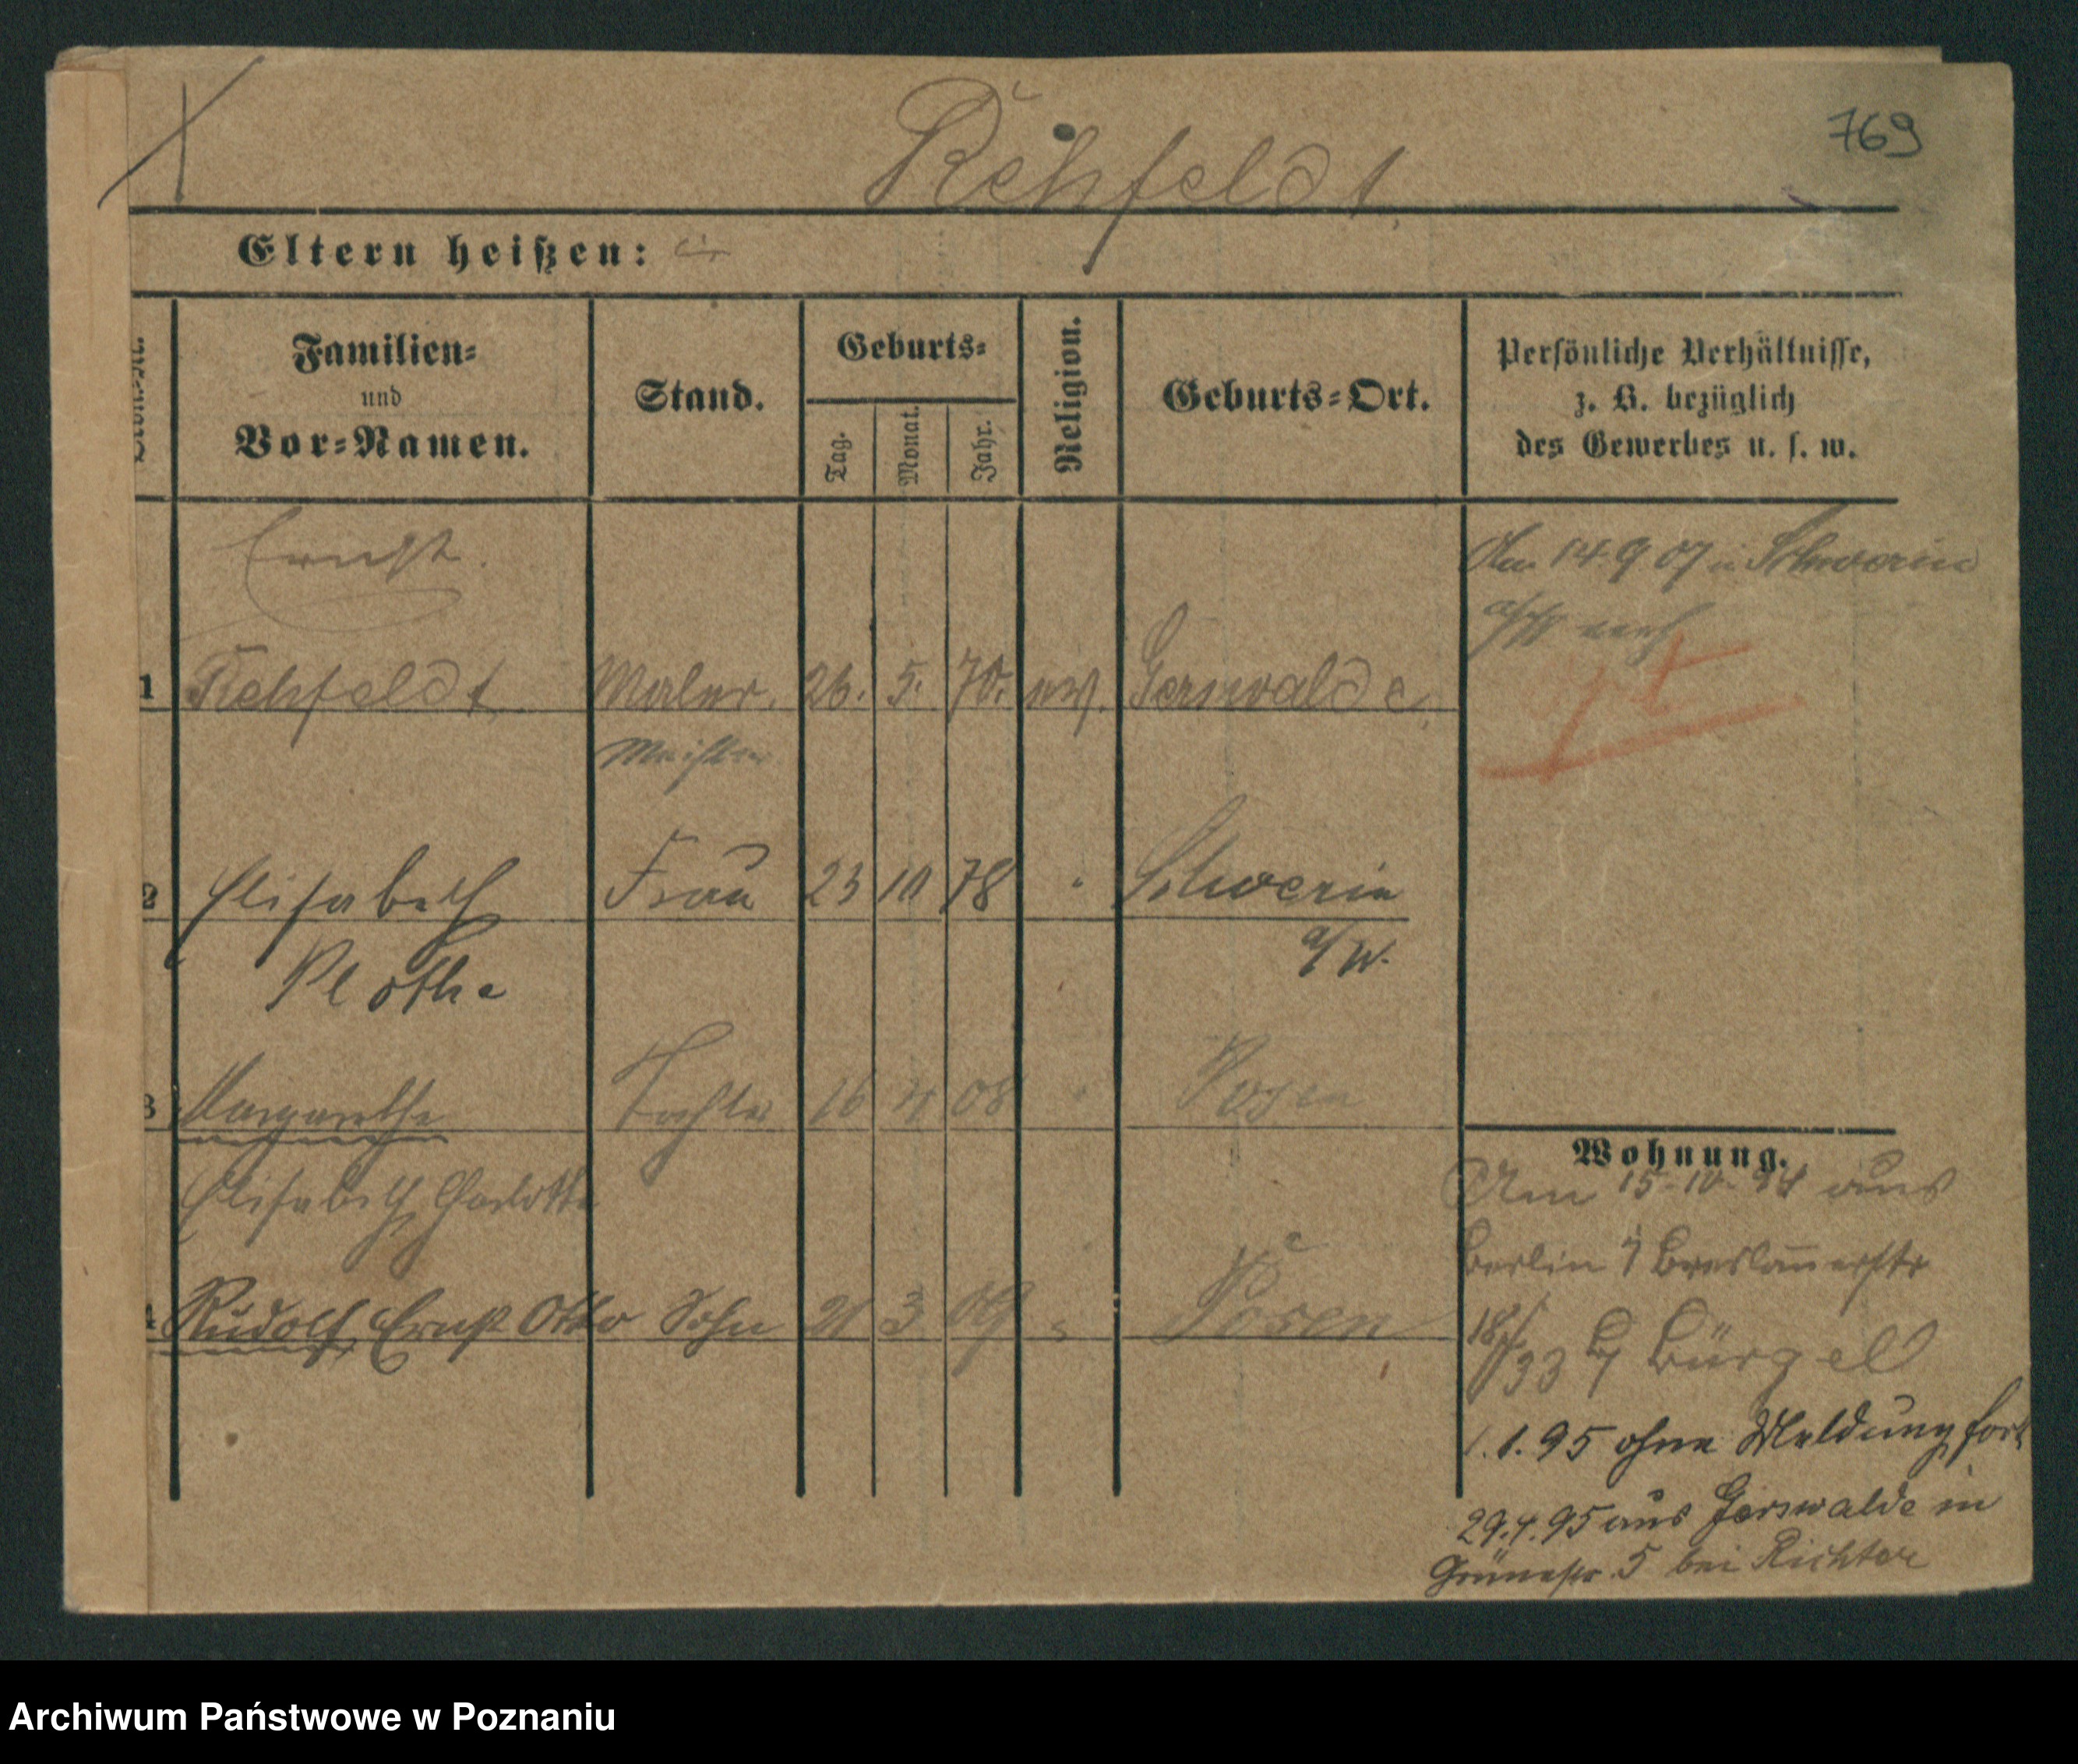 769
Rehfeldt.
Eltern heißen:
Nummer
Familien=
und
Vor=Namen.
Stand.
Geburts=
Tag.
Monat.
Jahr.
Religion.
Geburts=Ort.
Persönliche Verhältnisse,
z. B. bezüglich
des Gewerbes u. s. w.
Ernst.
1 Rehfeldt Maler. 26. 5. 70. ev. Gerswalde.
Meister
Am 14. 9 07 in Schwerin
a/W
2 Elisabeth Frau 23 10 78 " Schwerin
a/W.
Plothe
3 Margarethe Tochter 16 08 " Posen
Elisabeth Charlotte
4 Rudolf Ernst Otto Sohn 21 3 09 " Posen
Wohnung.
Am 15-10-94 aus
Berlin Breslauerstr
18/33 b/ Bürgel
1. 1. 95 ohne Meldung fort
29.4.95 aus Gerswalde in
Grünestr. 5 bei Richter
Archiwum Państwowe w Poznaniu